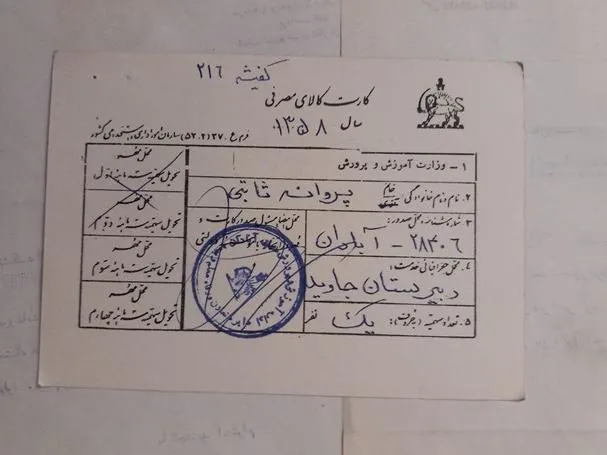 گیشه ۲۱۶
کارت کالای مصرفی
سال ۱۳۵۸
فرم ع ۲۷۰ (۲-۵۲) سازمان امور اداری و استخدامی کشور
۱ - وزارت آموزش و پرورش
۲. نام و نام خانوادگی خانم پروانه ثابتی
۳. شماره شناسنامه و محل صدور:
۲۸۴۰۶ - آبادان
۴. محل جغرافیائی خدمت:
دبیرستان جاوید
۵. تعداد سهمیه (بحروف): یک نفر
محل مهر و امضا مسئول صدور کارت و
محل مهر
تحویل سهمیه سه ماهه اول
محل مهر
تحویل سهمیه سه ماهه دوم
محل مهر
تحویل سهمیه سه ماهه سوم
محل مهر
تحویل سهمیه سه ماهه چهارم